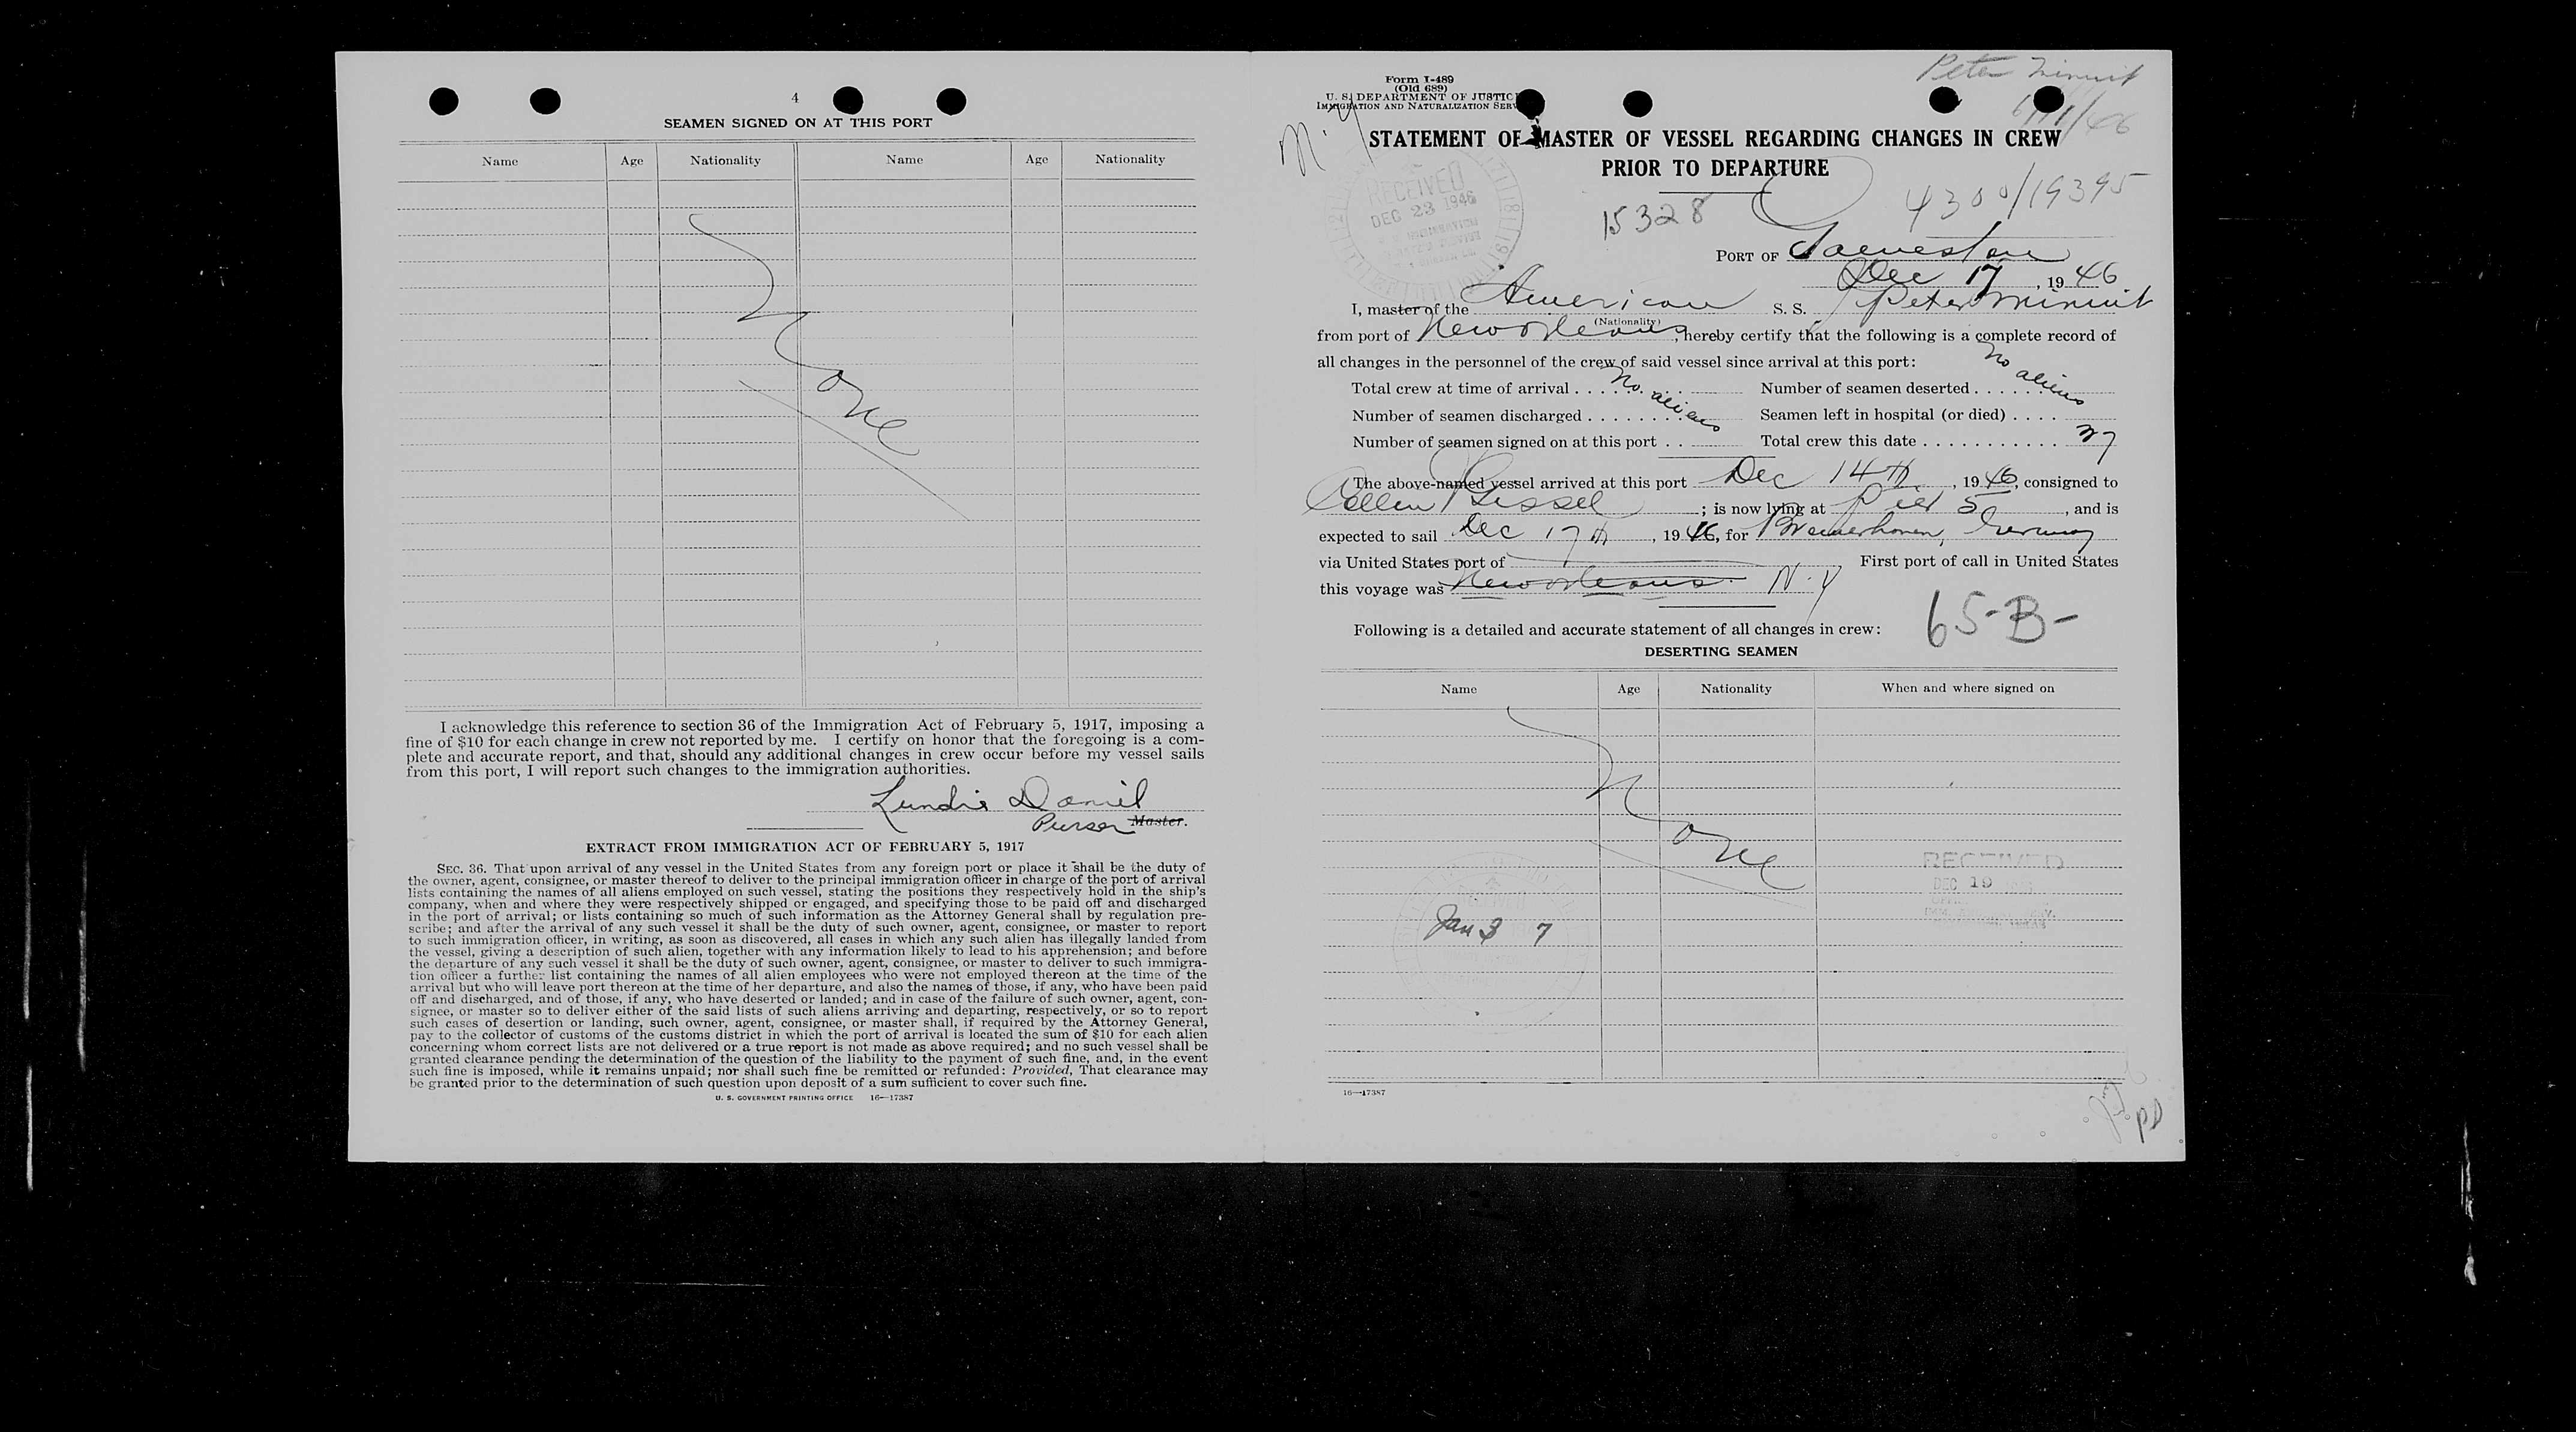 4
SEAMEN SIGNED ON AT THIS PORT
Name Age Nationality Name Age Nationality
None
I acknowledge this reference to section 36 of the Immigration Act of February 5, 1917, imposing a
fine of $10 for each change in crew not reported by me. I certify on honor that the foregoing is a com-
plete and accurate report, and that, should any additional changes in crew occur before my vessel sails
from this port, I will report such changes to the immigration authorities.
Daniel
Purser Master.
EXTRACT FROM IMMIGRATION ACT OF FEBRUARY 5, 1917
SEC. 36. That upon arrival of any vessel in the United States from any foreign port or place it shall be the duty of
the owner, agent, consignee, or master thereof to deliver to the principal immigration officer in charge of the port of arrival
lists containing the names of all aliens employed on such vessel, stating the positions they respectively hold in the ship's
company, when and where they were respectively shipped or engaged, and specifying those to be paid off and discharged
in the port of arrival; or lists containing so much of such information as the Attorney General shall by regulation pre-
scribe; and after the arrival of any such vessel it shall be the duty of such owner, agent, consignee, or master to report
to such immigration officer, in writing, as soon as discovered, all cases in which any such alien has illegally landed from
the vessel, giving a description of such alien, together with any information likely to lead to his apprehension; and before
the departure of any such vessel it shall be the duty of such owner, agent, consignee, or master to deliver to such immigra-
tion officer a further list containing the names of all alien employees who were not employed thereon at the time of the
arrival but who will leave port thereon at the time of her departure, and also the names of those, if any, who have been paid
off and discharged, and of those, if any, who have deserted or landed; and in case of the failure of such owner, agent, con-
signee, or master so to deliver either of the said lists of such aliens arriving and departing, respectively, or so to report
such cases of desertion or landing, such owner, agent, consignee, or master shall, if required by the Attorney General,
pay to the collector of customs of the customs district in which the port of arrival is located the sum of $10 for each alien
concerning whom correct lists are not delivered or a true report is not made as above required; and no such vessel shall be
granted clearance pending the determination of the question of the liability to the payment of such fine, and, in the event
such fine is imposed, while it remains unpaid; nor shall such fine be remitted or refunded: Provided, That clearance may
be granted prior to the determination of such question upon deposit of a sum sufficient to cover such fine.
U. S. GOVERNMENT PRINTING OFFICE 16—17387
Peter Minuit
Form I-489
(Old 689)
U. S. DEPARTMENT OF JUSTICE
IMMIGRATION AND NATURALIZATION SERV
N. Y
STATEMENT OF MASTER OF VESSEL REGARDING CHANGES IN CREW
PRIOR TO DEPARTURE
RECEIVED
DEC 23 1946
15328
4300/19395
PORT OF Galveston
Dec 17, 1946
I, master of the American S. S. Peter Minuit
(Nationality)
from port of New Orleans, hereby certify that the following is a complete record of
all changes in the personnel of the crew of said vessel since arrival at this port:
Total crew at time of arrival No aliens Number of seamen deserted No aliens
Number of seamen discharged Seamen left in hospital (or died)
Number of seamen signed on at this port Total crew this date 37
The above-named vessel arrived at this port Dec 14th, 1946, consigned to
; is now lying at Pier 5, and is
expected to sail Dec 17th, 1946, for Bremerhaven, Germany
via United States port of First port of call in United States
this voyage was New Orleans. N. Y
65-B-
Following is a detailed and accurate statement of all changes in crew:
DESERTING SEAMEN
Name Age Nationality When and where signed on
None
RECEIVED
DEC 19
Jan 3 7
16—17387